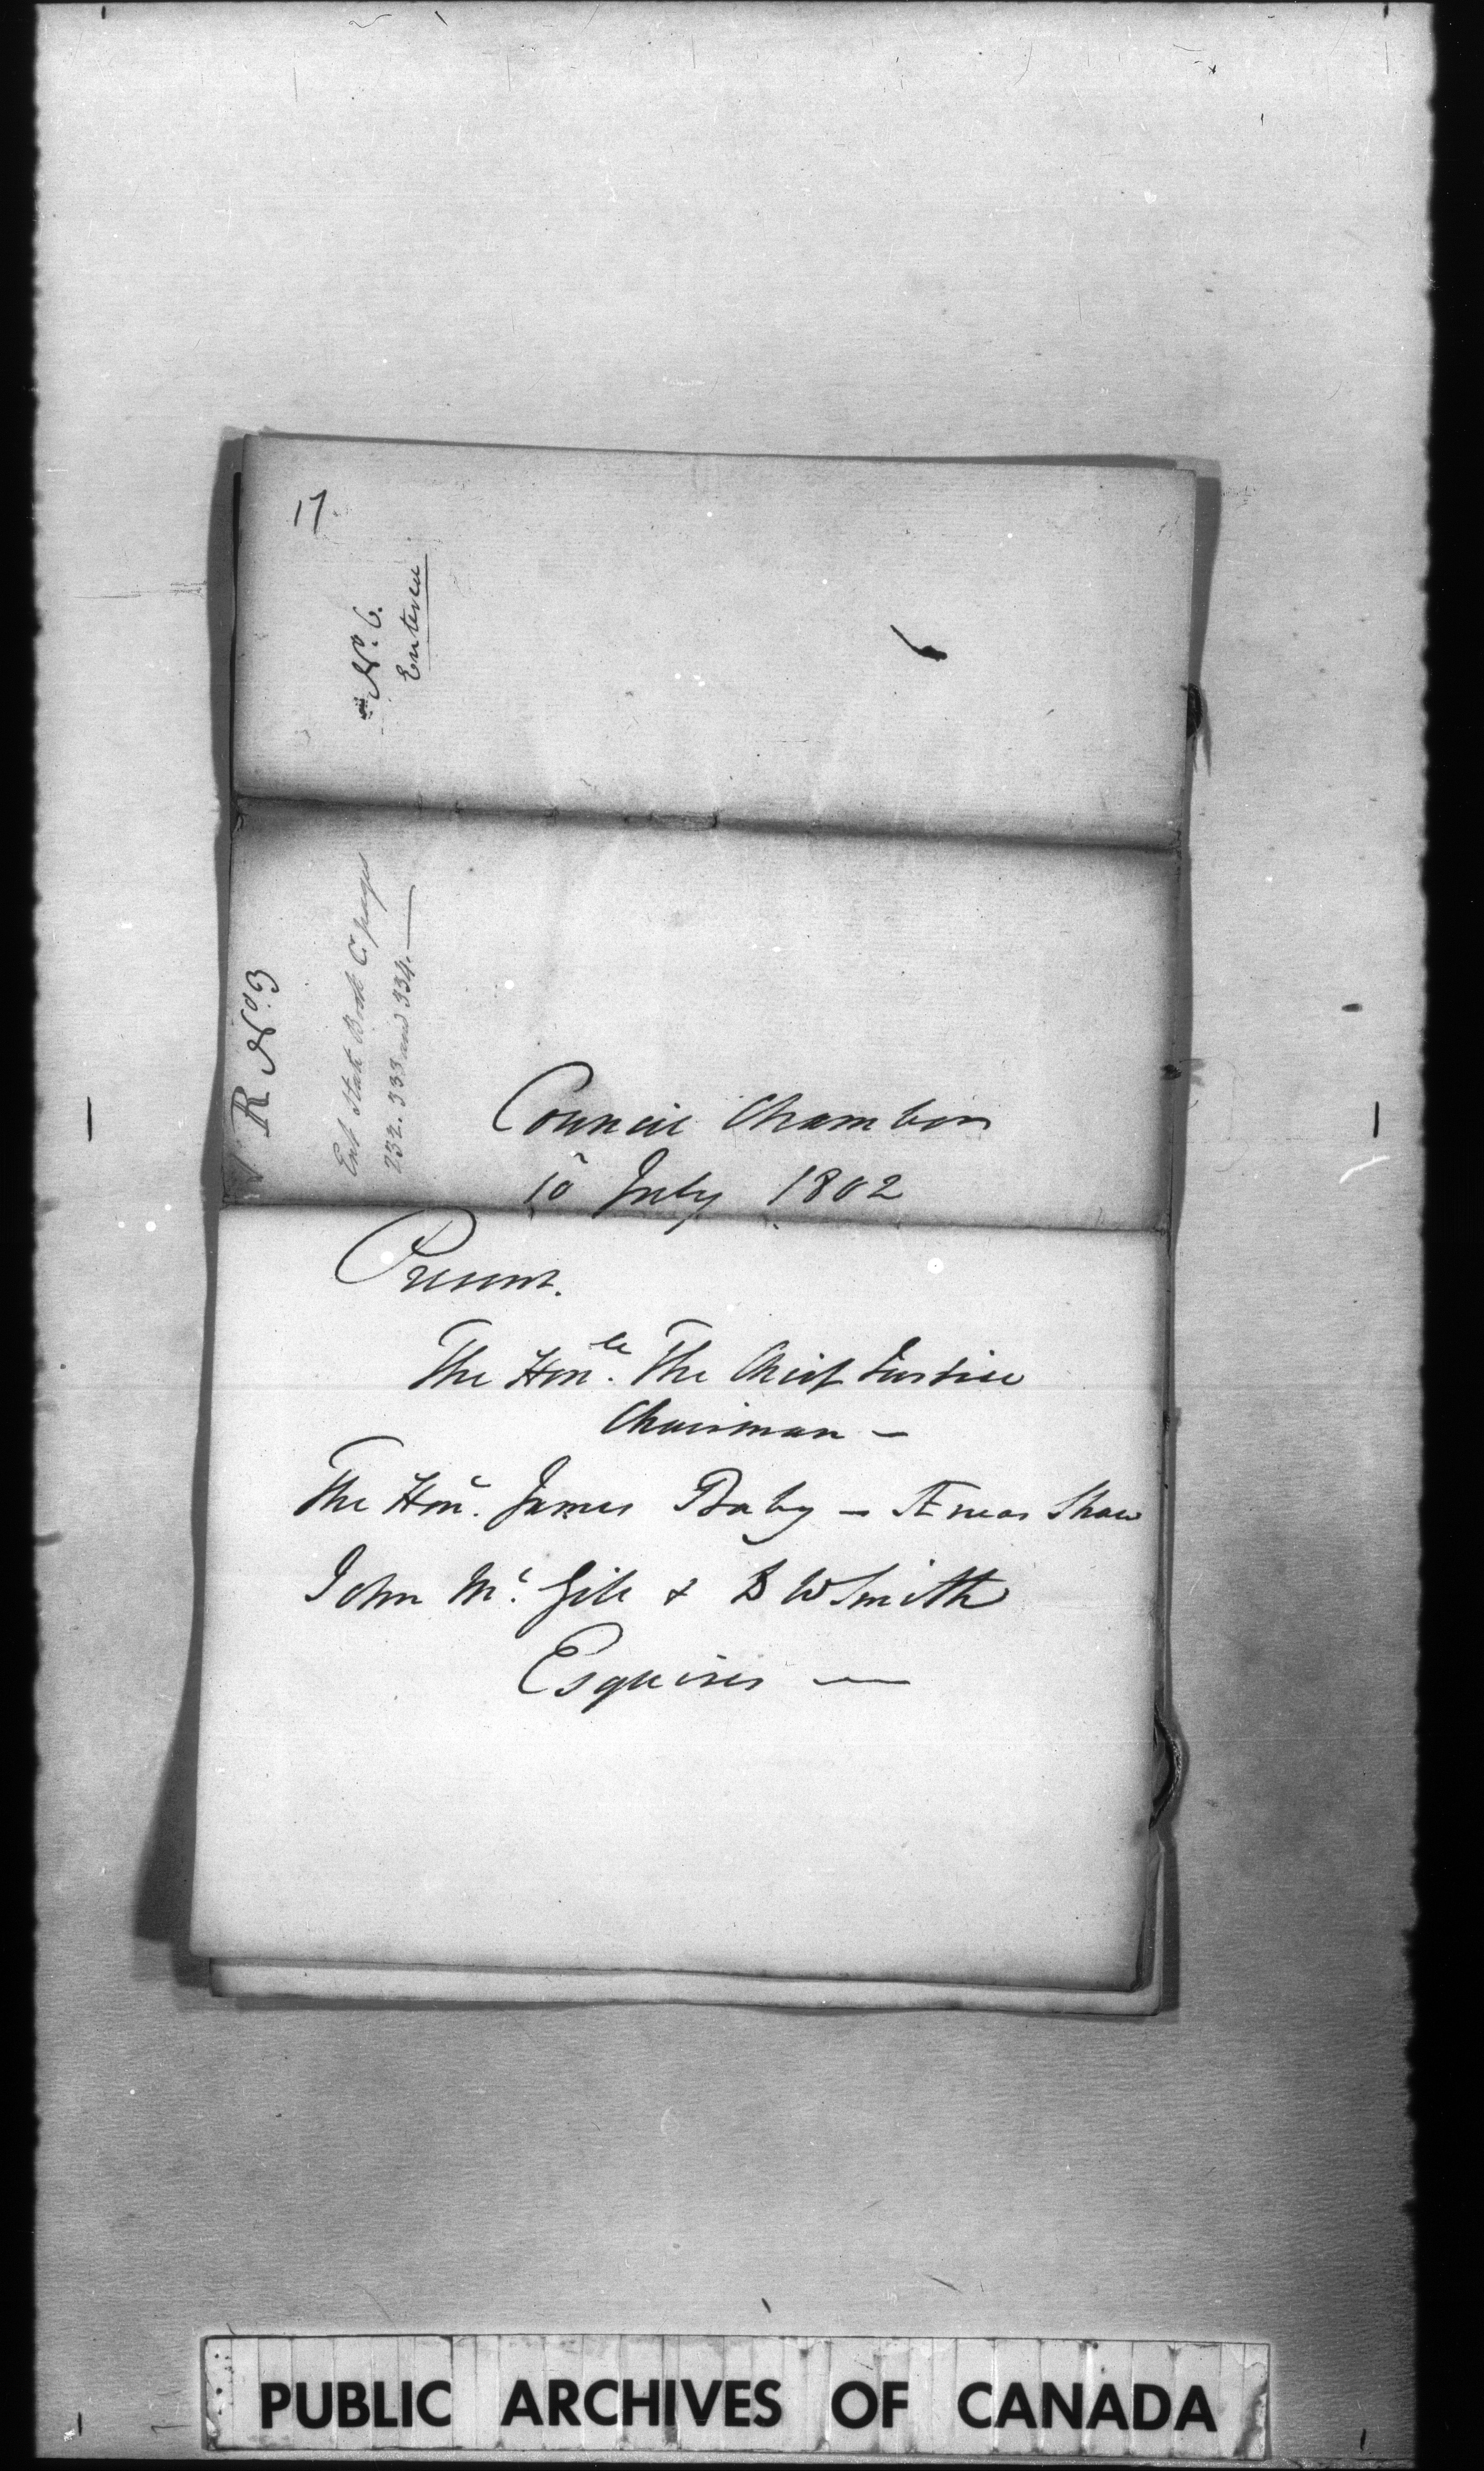 17.
No. 6.
Entered
R No. 3
Ent State Book C. pages
232. 333 and 334.—
Council Chamber
10 July 1802
Present.
The Honle. The Chief Justice
Chairman —
The Hon. James Baby — Æneas Shaw
John Mc. Gill & D W Smith
Esquires —
PUBLIC ARCHIVES OF CANADA